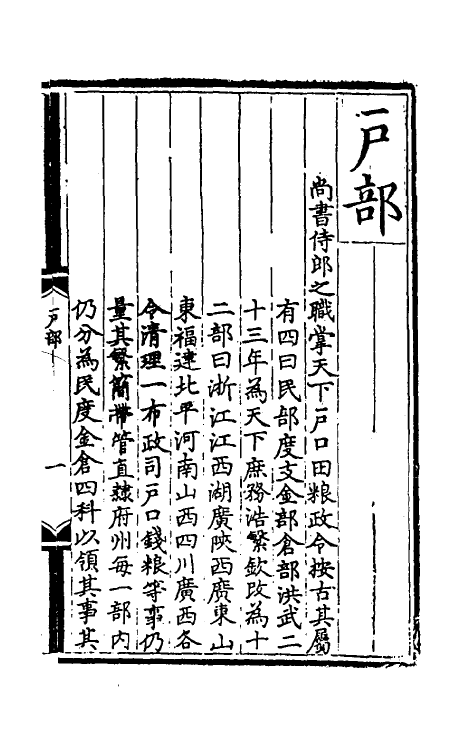 戶部
尚書侍郎之職掌天下戶口田粮政令按古其屬
有四曰民部度支金部倉部洪武二
十三年為天下庶務浩繁欽改為十
二部曰浙江江西湖廣陝西廣東山
東福建北平河南山西四川廣西各
令清理一布政司戶口錢粮等事仍
量其繁簡帶管直隸府州每一部内
仍分為民度金倉四科以領其事其
戶部
一